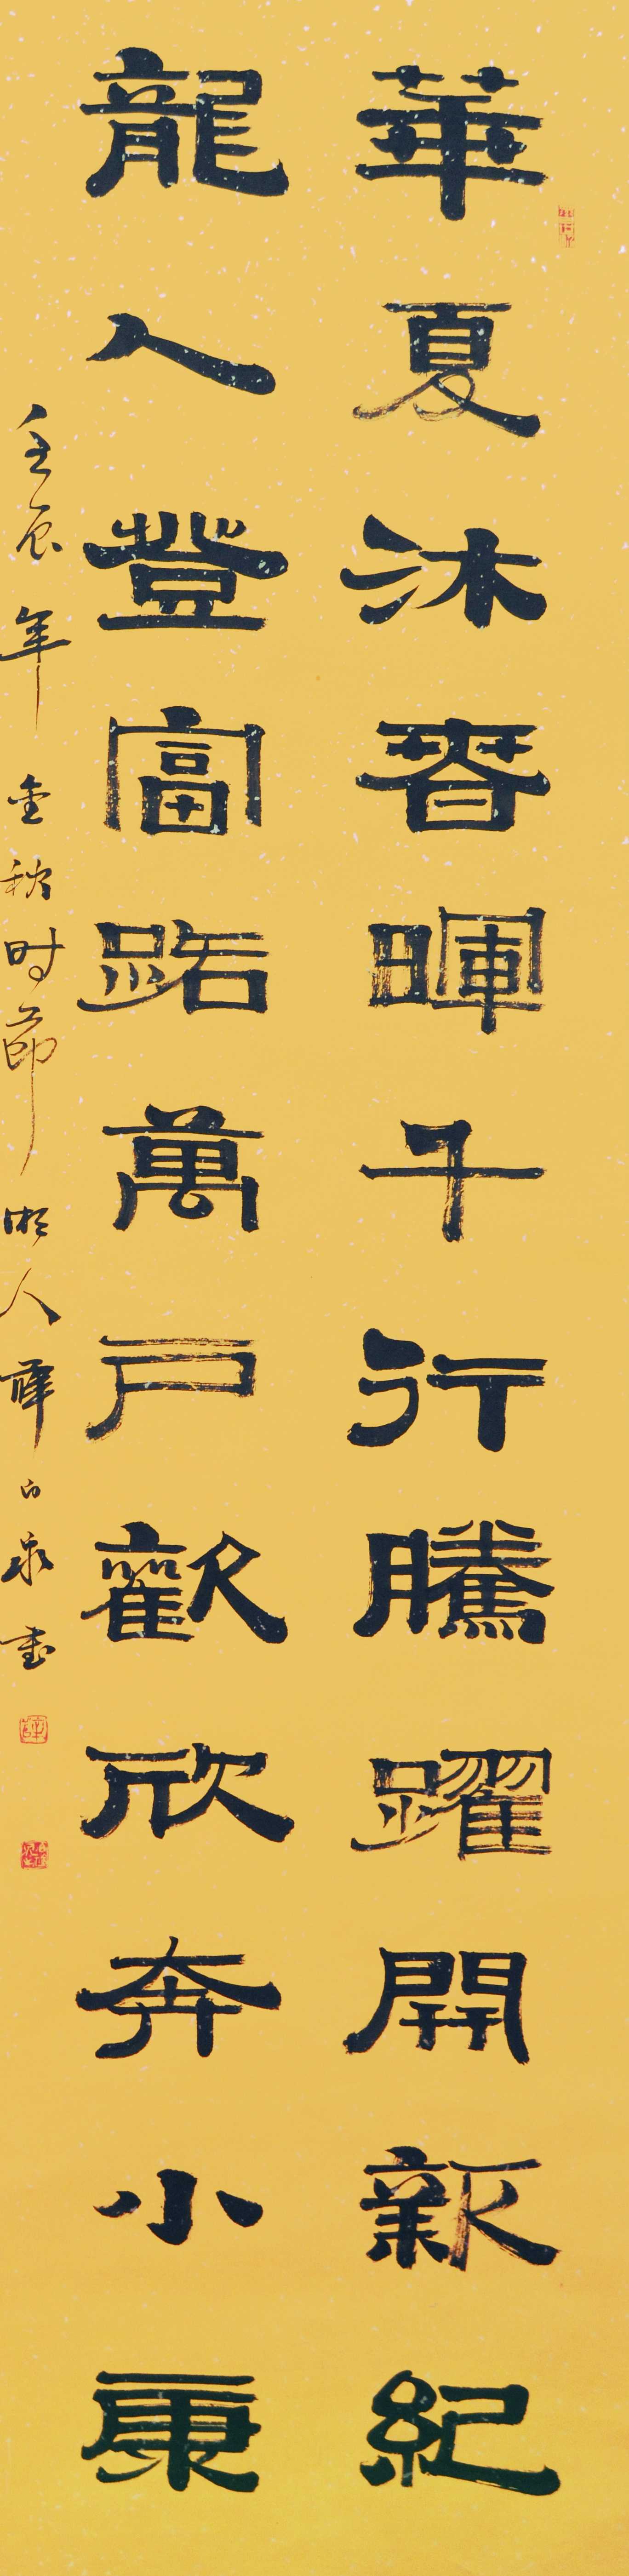 華夏沐春暉千行騰躍開新紀
龍人登富路萬戶歡欣奔小康
壬辰年金秋时節湘人薛白泉書